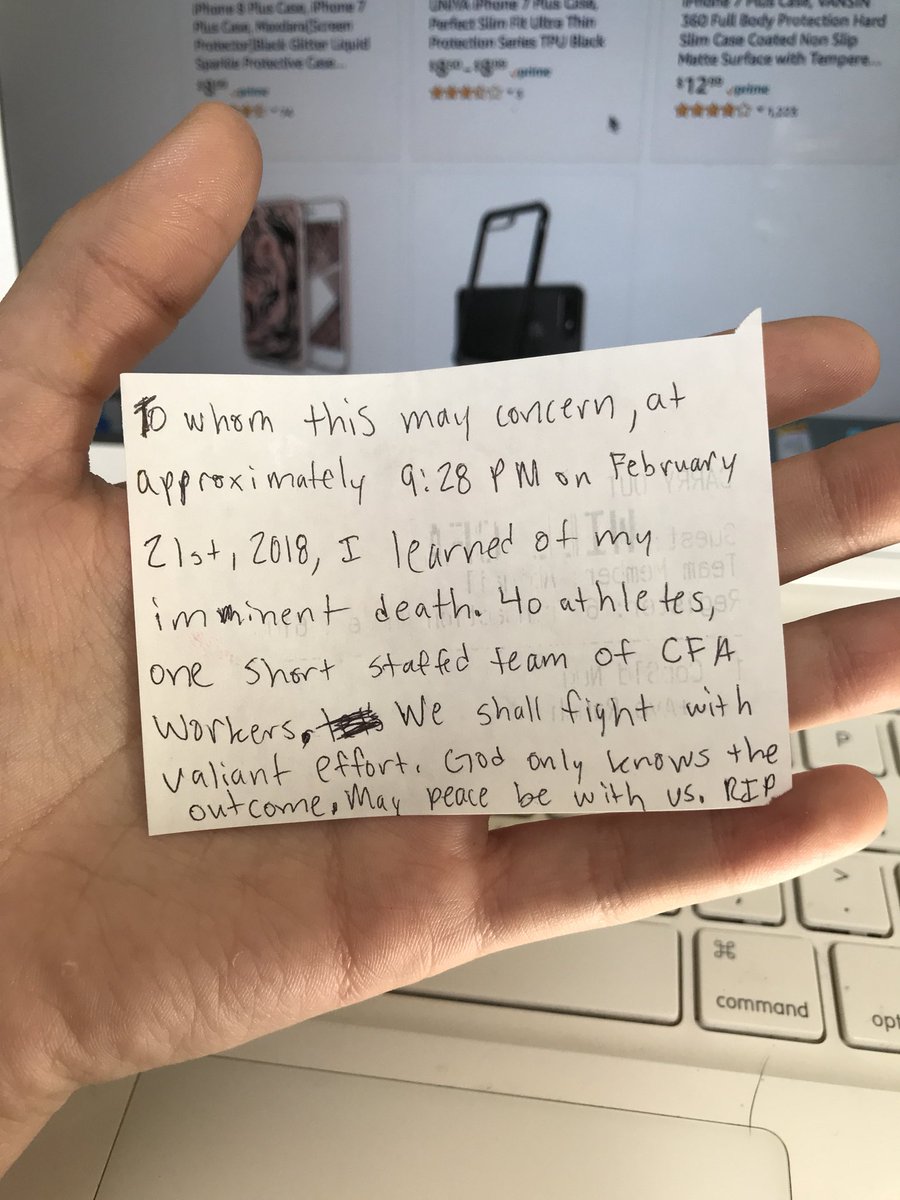 iPhone 8 Plus Case, iPhone 7
Plus Case,
Protector]Black Glitter Liquid
Sparkle Protective Case...
prime
iPhone 7 Plus Case,
Perfect Slim Fit Ultra Thin
Protection Series TPU Black
prime
iPhone 7 Plus Case,
360 Full Body Protection Hard
Slim Case Coated Non Slip
Matte Surface with Tempere...
$12
prime
To whom this may concern, at
approximately 9:28 PM on February
21st, 2018, I learned of my
imminent death. 40 athletes,
one short staffed team of CFA
workers. We shall fight with
valiant effort. God only knows the
outcome. May peace be with us. RIP
P
>
.
⌘
command
opt